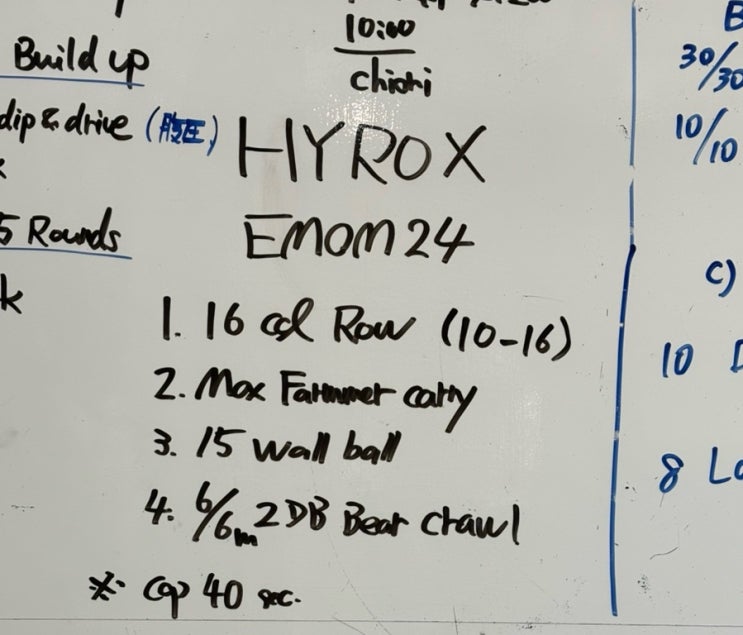 Build up
dip & drive (腹圧)
5 Rounds
k
10:00
chiori
HYROX
EMOM 24
1. 16 cal Row (10-16)
2. Max Farmmer carry
3. 15 wall ball
4. 6/6m 2DB Bear crawl
※ cap 40 sec.
30/30
10/10
c)
10
8